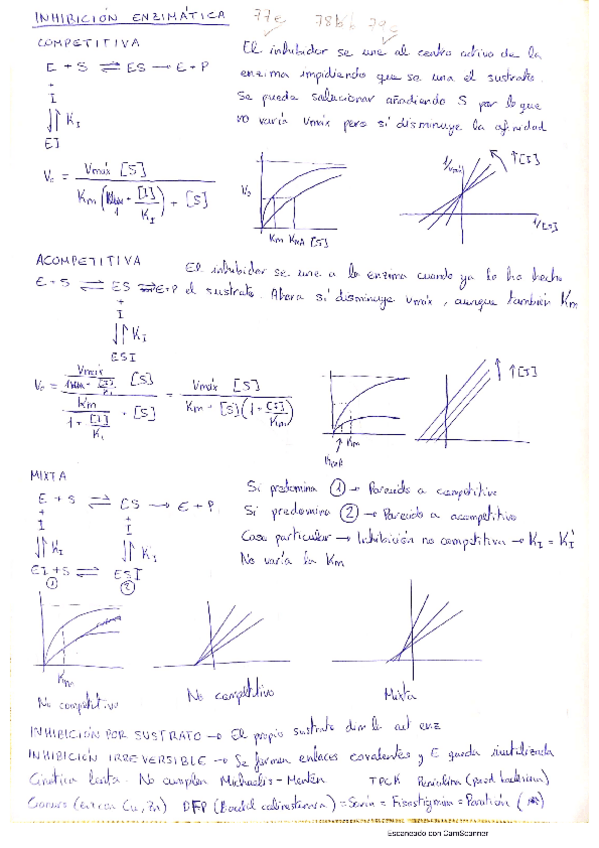 INHIBICIÓN ENZIMÁTICA 77e 78b
COMPETITIVA
E + S ⇌ ES → E + P
+
I
⇅ K_I
EI
El inhibidor se une al centro activo de la
enzima impidiendo que se una el sustrato.
Se puede solucionar añadiendo S por lo que
no varía Vmáx pero sí disminuye la afinidad
V₀ = Vmáx [S] / Km (1 + [I]/K_I) + [S]
V₀
Km KmA [S]
1/Vmáx ↑[I]
1/[S]
ACOMPETITIVA
El inhibidor se une a la enzima cuando ya lo ha hecho
el sustrato. Ahora sí disminuye Vmáx, aunque también Km
E + S ⇌ ES → E + P
+
I
⇅ K_I
ESI
= Vmáx [S] / Km + [S](1 + [I]/
Km
↑[I]
MIXTA
E + S ⇌ ES → E + P
+ +
I I
⇅ K_I ⇅ K_I
EI + S ⇌ ESI
① ②
Si predomina ① → Parecido a competitivo
Si predomina ② → Parecido a acompetitivo
Caso particular → Inhibición no competitiva → K_I = K_I'
No varía la Km
Km
No competitivo
No competitivo
Mixta
INHIBICIÓN POR SUSTRATO → El propio sustrato dim la act enz
INHIBICIÓN IRREVERSIBLE → Se forman enlaces covalentes y E queda inutilizada
Cinética lenta. No cumplen Michaelis-Menten TPCK Penicilina (pred bacteriana)
Cianuro (Cu, Zn) DFP = Sarín = Fisostigmina = Paratión
Escaneado con CamScanner